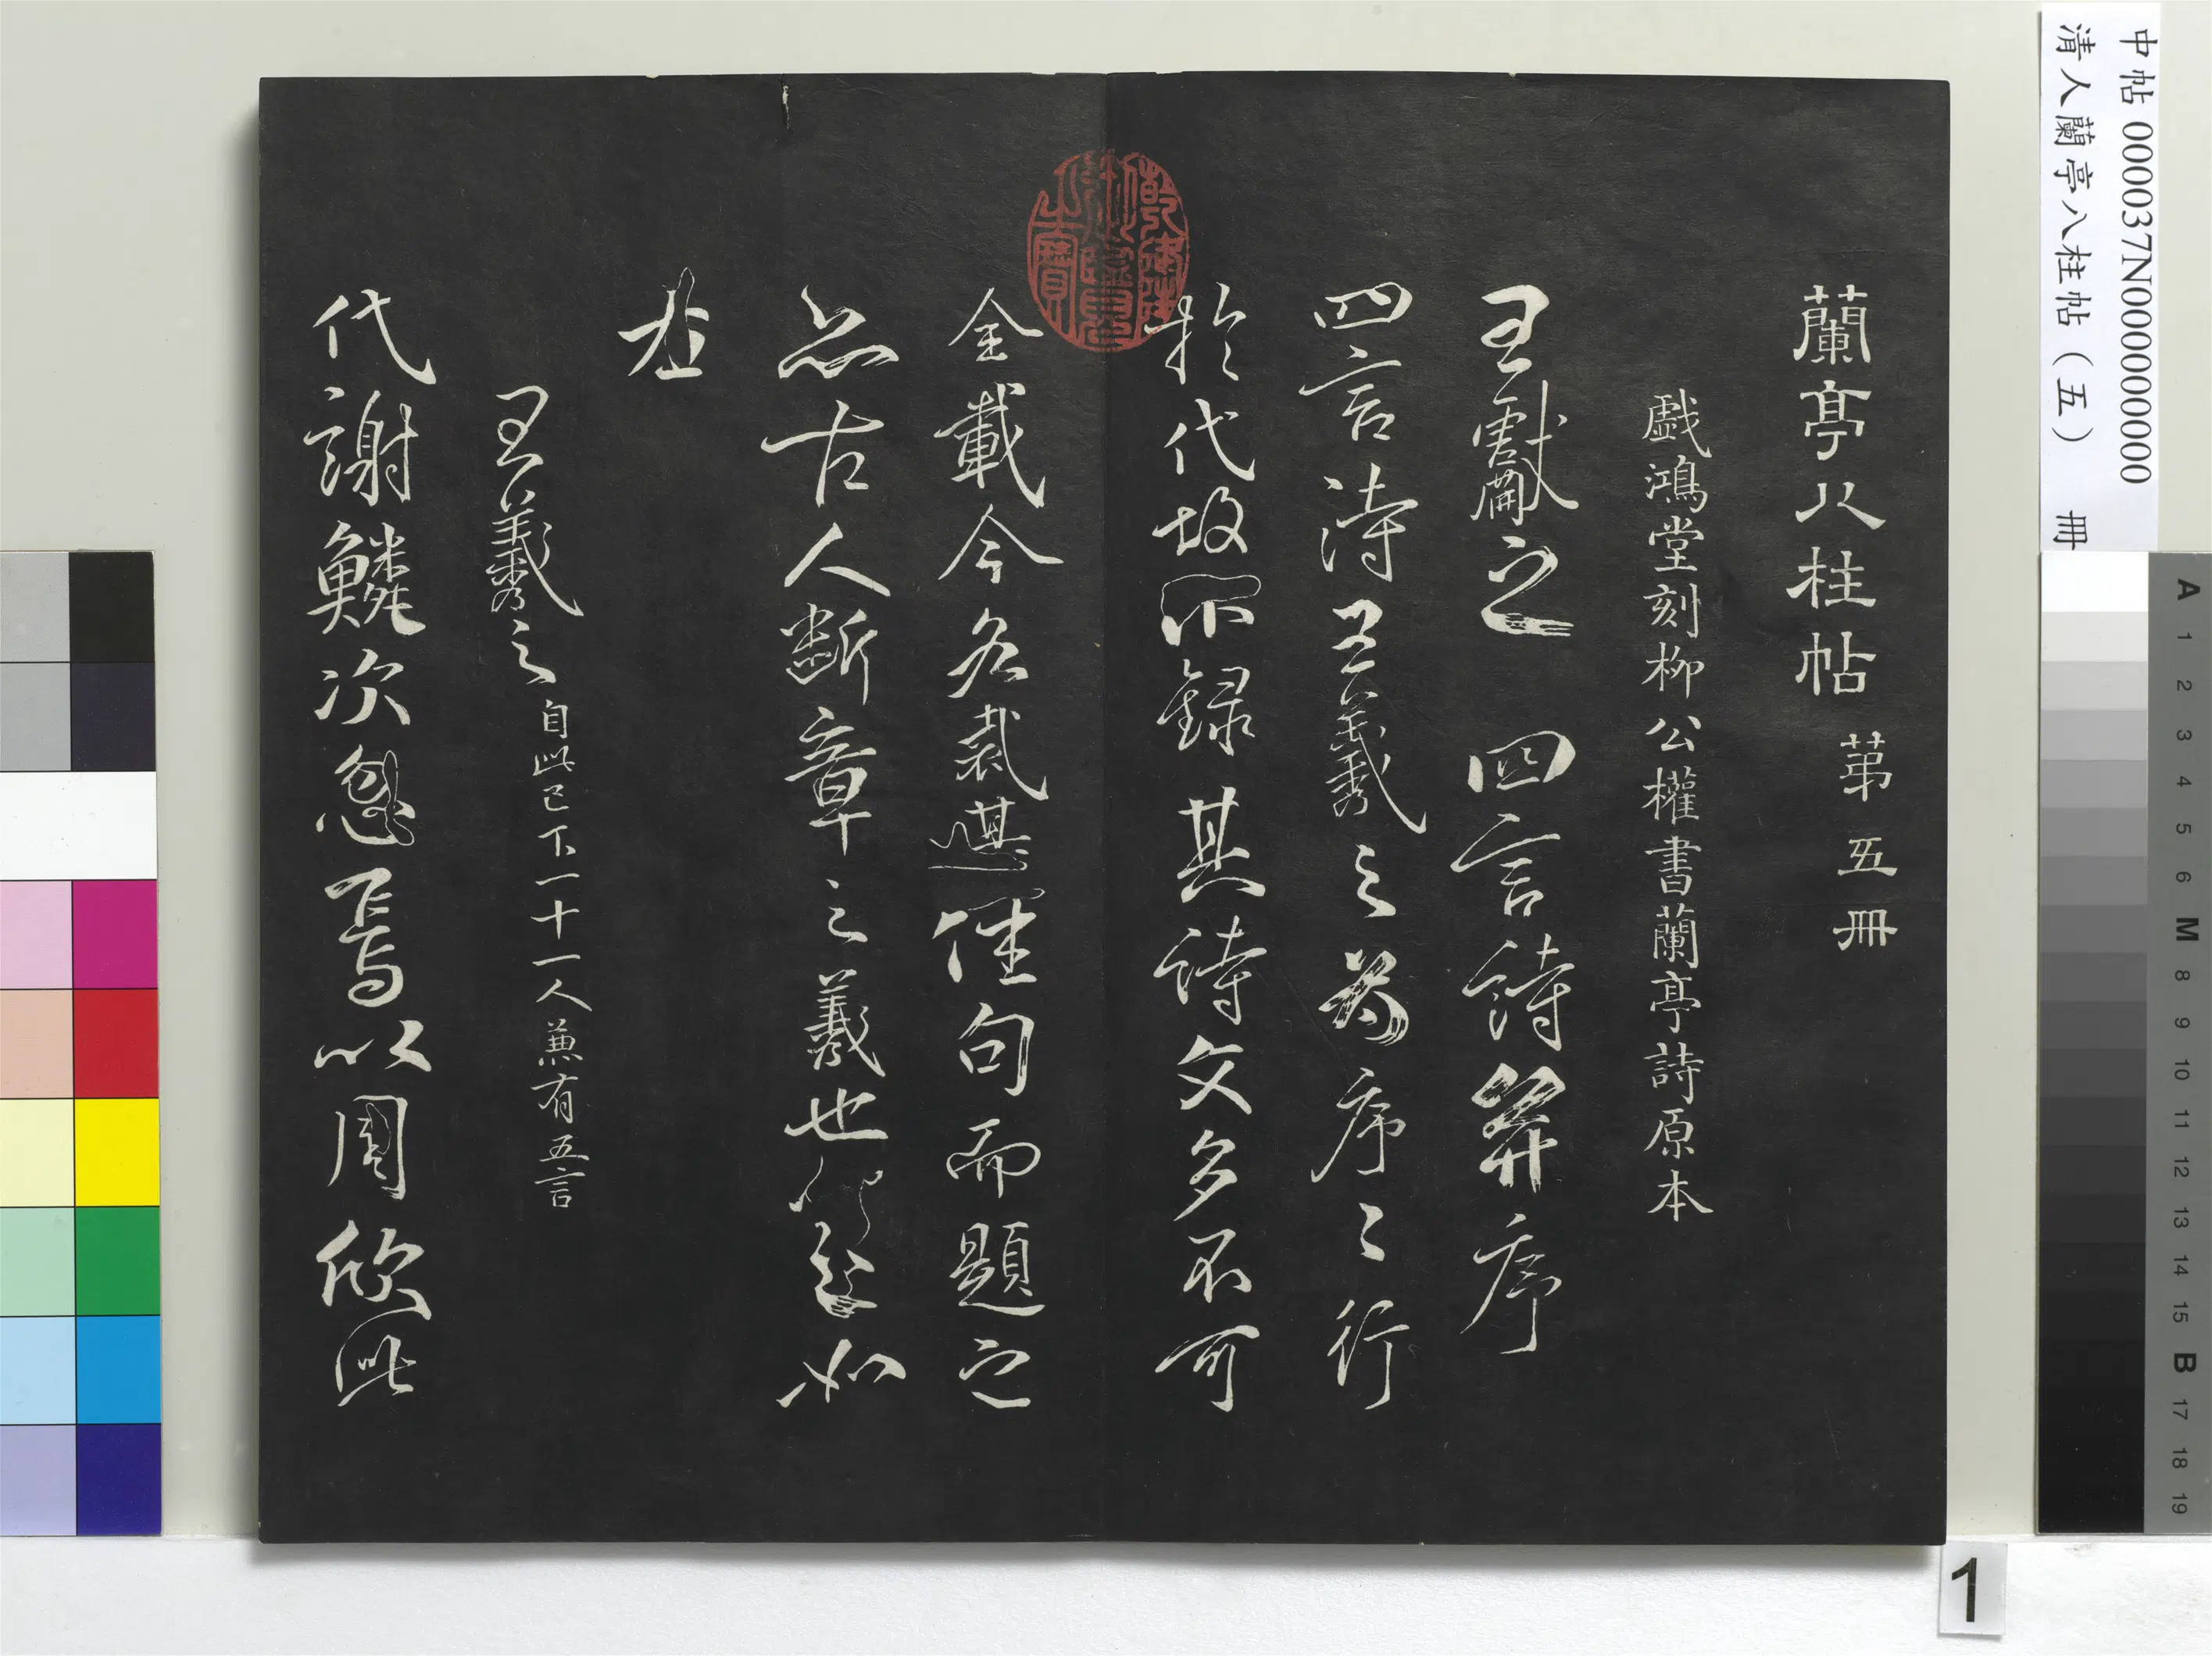 中帖 000037N000000000
清人蘭亭八柱帖（五） 冊
蘭亭八柱帖 苐五冊
戲鴻堂刻柳公權書蘭亭詩原本
王獻之 四言詩并序
四言詩王羲之為序序行
於代故不録其詩文多不可
全載今各裁其佳句而題之
亦古人斷章之義也
如
左
王羲之 自此已下一十一人兼有五言
代謝鱗次忽焉以周欣此
乾隆御覽之寶
A 1 2 3 4 5 6 M 8 9 10 11 12 13 14 15 B 17 18 19
1